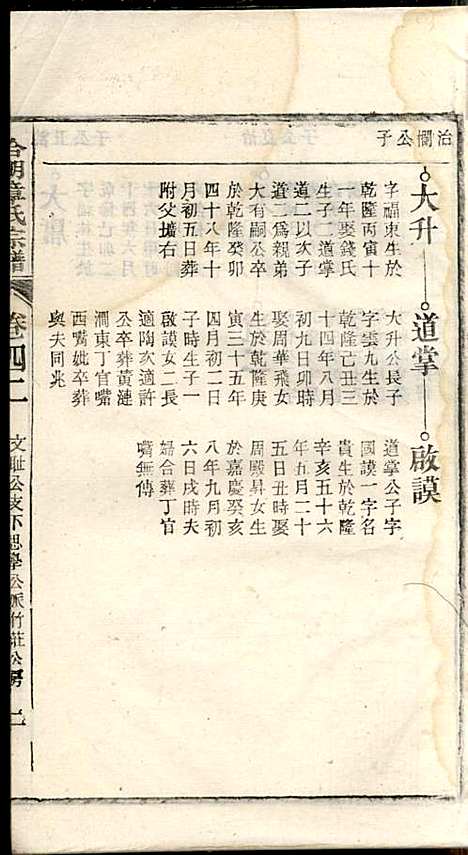 治憪公子
大升
字福東生於
乾隆丙寅十
一年娶錢氏
生子二道掌
道二以次子
道三為親弟
大有嗣公卒
於乾隆癸卯
四十八年十
月初五日葬
附父壙右
道掌
大升公長子
字雲九生於
乾隆己丑三
十四年八月
初九日卯時
娶周華飛女
生於乾隆庚
寅三十五年
四月初二日
子時生子一
啟謨女二長
適陶次適許
公卒葬黃漣
澗東丁官嘴
西嘴妣卒葬
與夫同兆
啟謨
道掌公子字
國謨一字名
貴生於乾隆
辛亥五十六
年五月二十
五日丑時娶
周殿昇女生
於嘉慶癸亥
八年九月初
六日戌時夫
婦合葬丁官
嘴無傳
章氏宗譜
卷四十二
文耻公支下思學公派竹莊公房